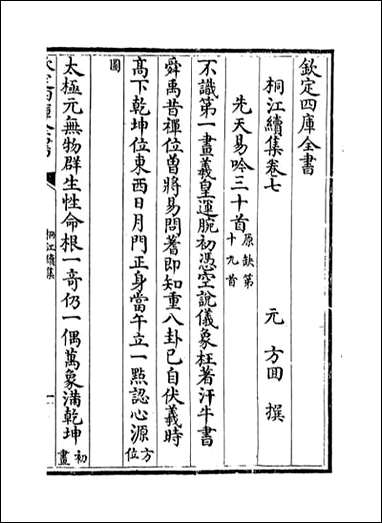 欽定四庫全書
桐江續集卷七
元 方回 撰
先天易吟三十首原缺第十九首
不識第一畫羲皇運腕初憑空說儀象枉著汗牛書
舜禹昔禪位曽將易問蓍即知重八卦已自伏羲時
髙下乾坤位東西日月門正身當午立一點認心源方位
圖
太極元無物群生性命根一奇仍一偶萬象滿乾坤初畫
桐江續集
一